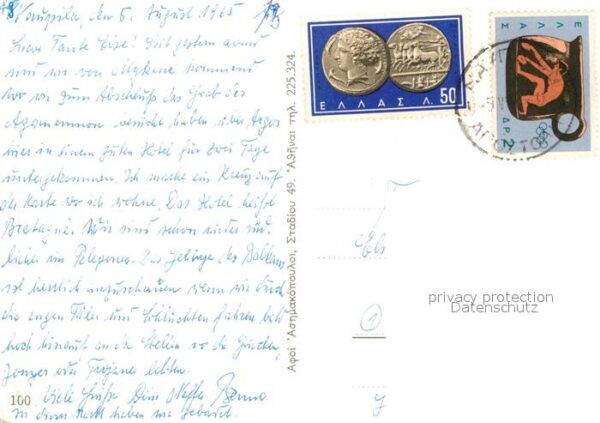 Naupila, den 6. August 1965
Liebe Tante Else! Seit gestern abend
sind wir von Mykene kommend
wo wir zum Abschluss das Grab des
Agamemnon besucht haben über Argos
hier in einem guten Hotel für zwei Tage
untergekommen. Ich mache ein Kreuz auf
der Karte wo ich wohne. Das Hotel heißt
Bretagne. Wir sind schon wieder
im Peloponnes. Das Gebirge des Balkans
ist herrlich anzuschauen wenn wir durch
die engen Täler und Schluchten fahren bald
hoch hinauf an die Stellen wo die Griechen,
oder Trojaner lebten.
Viele Grüße Dein Neffe Benno
in dieser Bucht haben wir gebadet.
100
Αφοί Ἀστημακόπουλοι, Σταδίου 49. Ἀθῆναι τηλ. 225.324.
ΕΛΛΑΣ Λ. 50
ΕΛΛΑΣ
ΔΡ 2
Els
privacy protection
Datenschutz